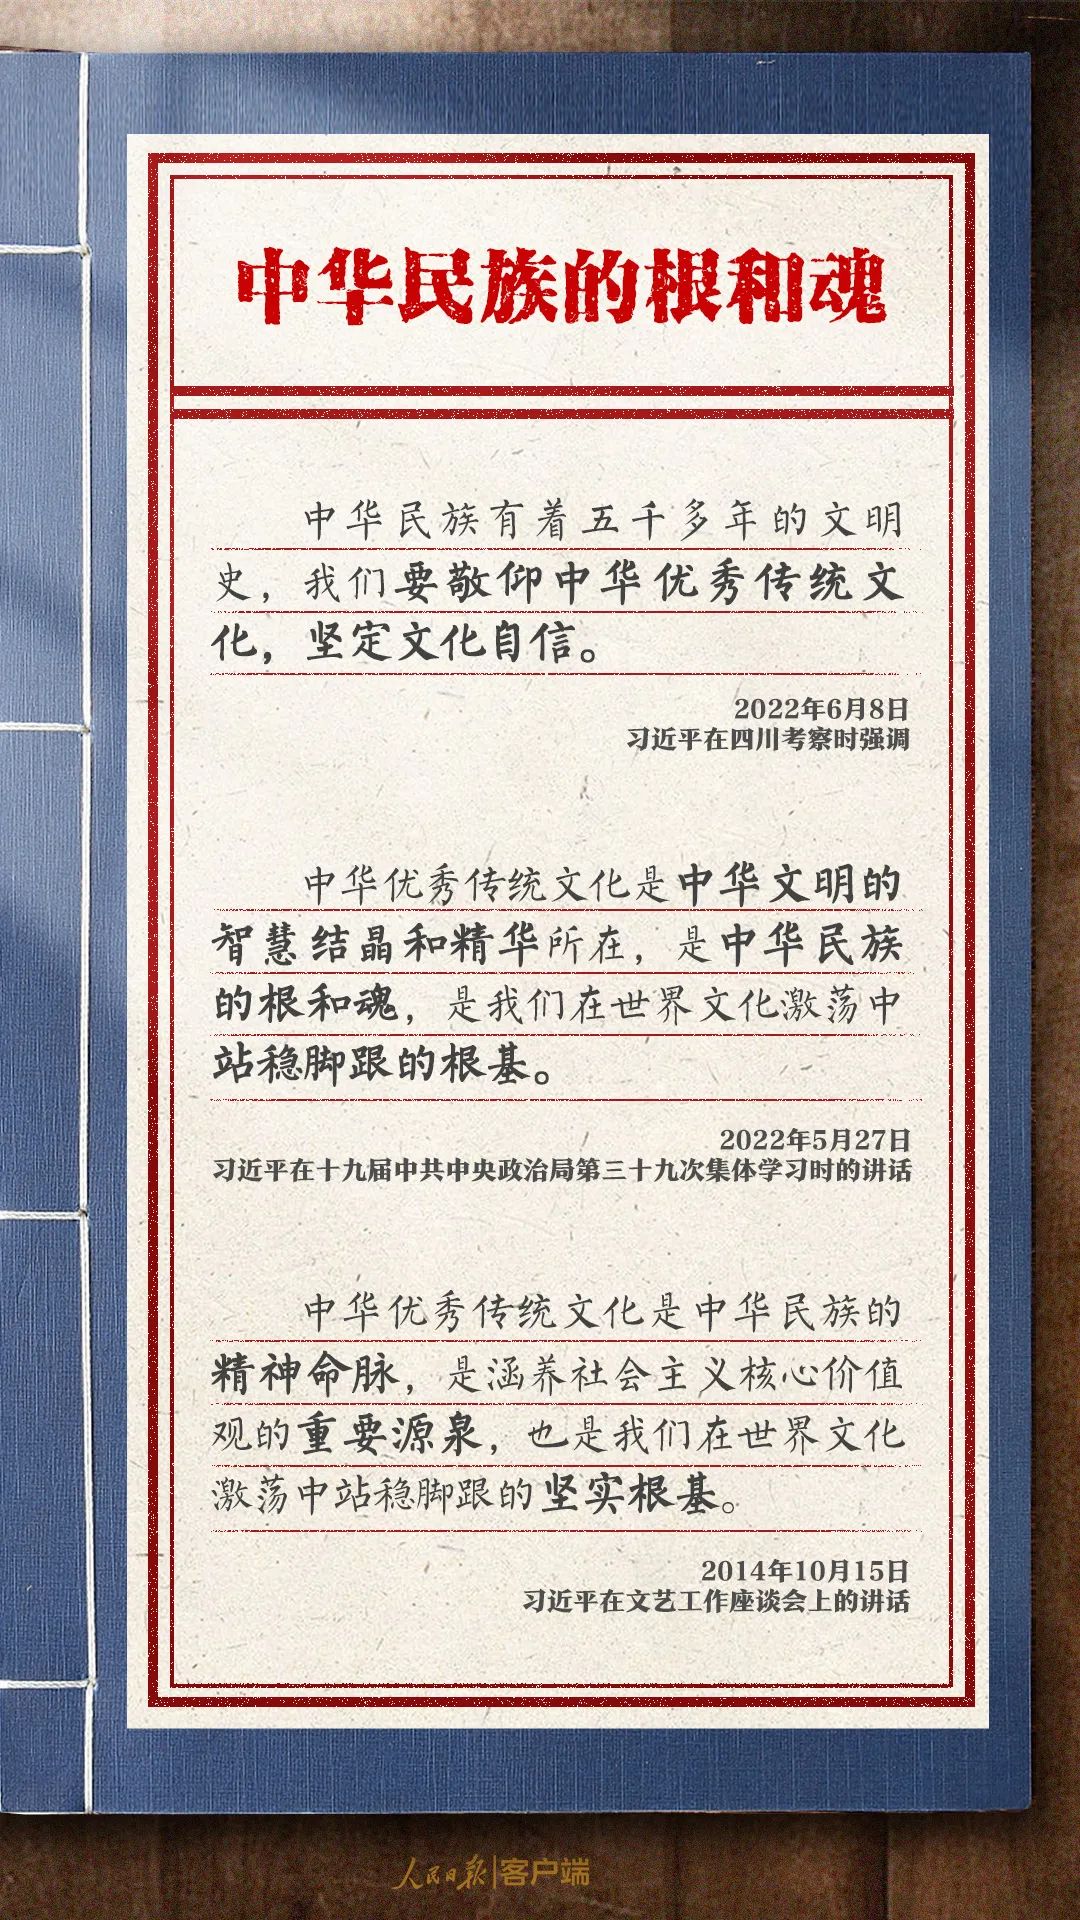 中华民族的根和魂
中华民族有着五千多年的文明
史，我们要敬仰中华优秀传统文
化，坚定文化自信。
2022年6月8日
习近平在四川考察时强调
中华优秀传统文化是中华文明的
智慧结晶和精华所在，是中华民族
的根和魂，是我们在世界文化激荡中
站稳脚跟的根基。
2022年5月27日
习近平在十九届中共中央政治局第三十九次集体学习时的讲话
中华优秀传统文化是中华民族的
精神命脉，是涵养社会主义核心价值
观的重要源泉，也是我们在世界文化
激荡中站稳脚跟的坚实根基。
2014年10月15日
习近平在文艺工作座谈会上的讲话
人民日报|客户端